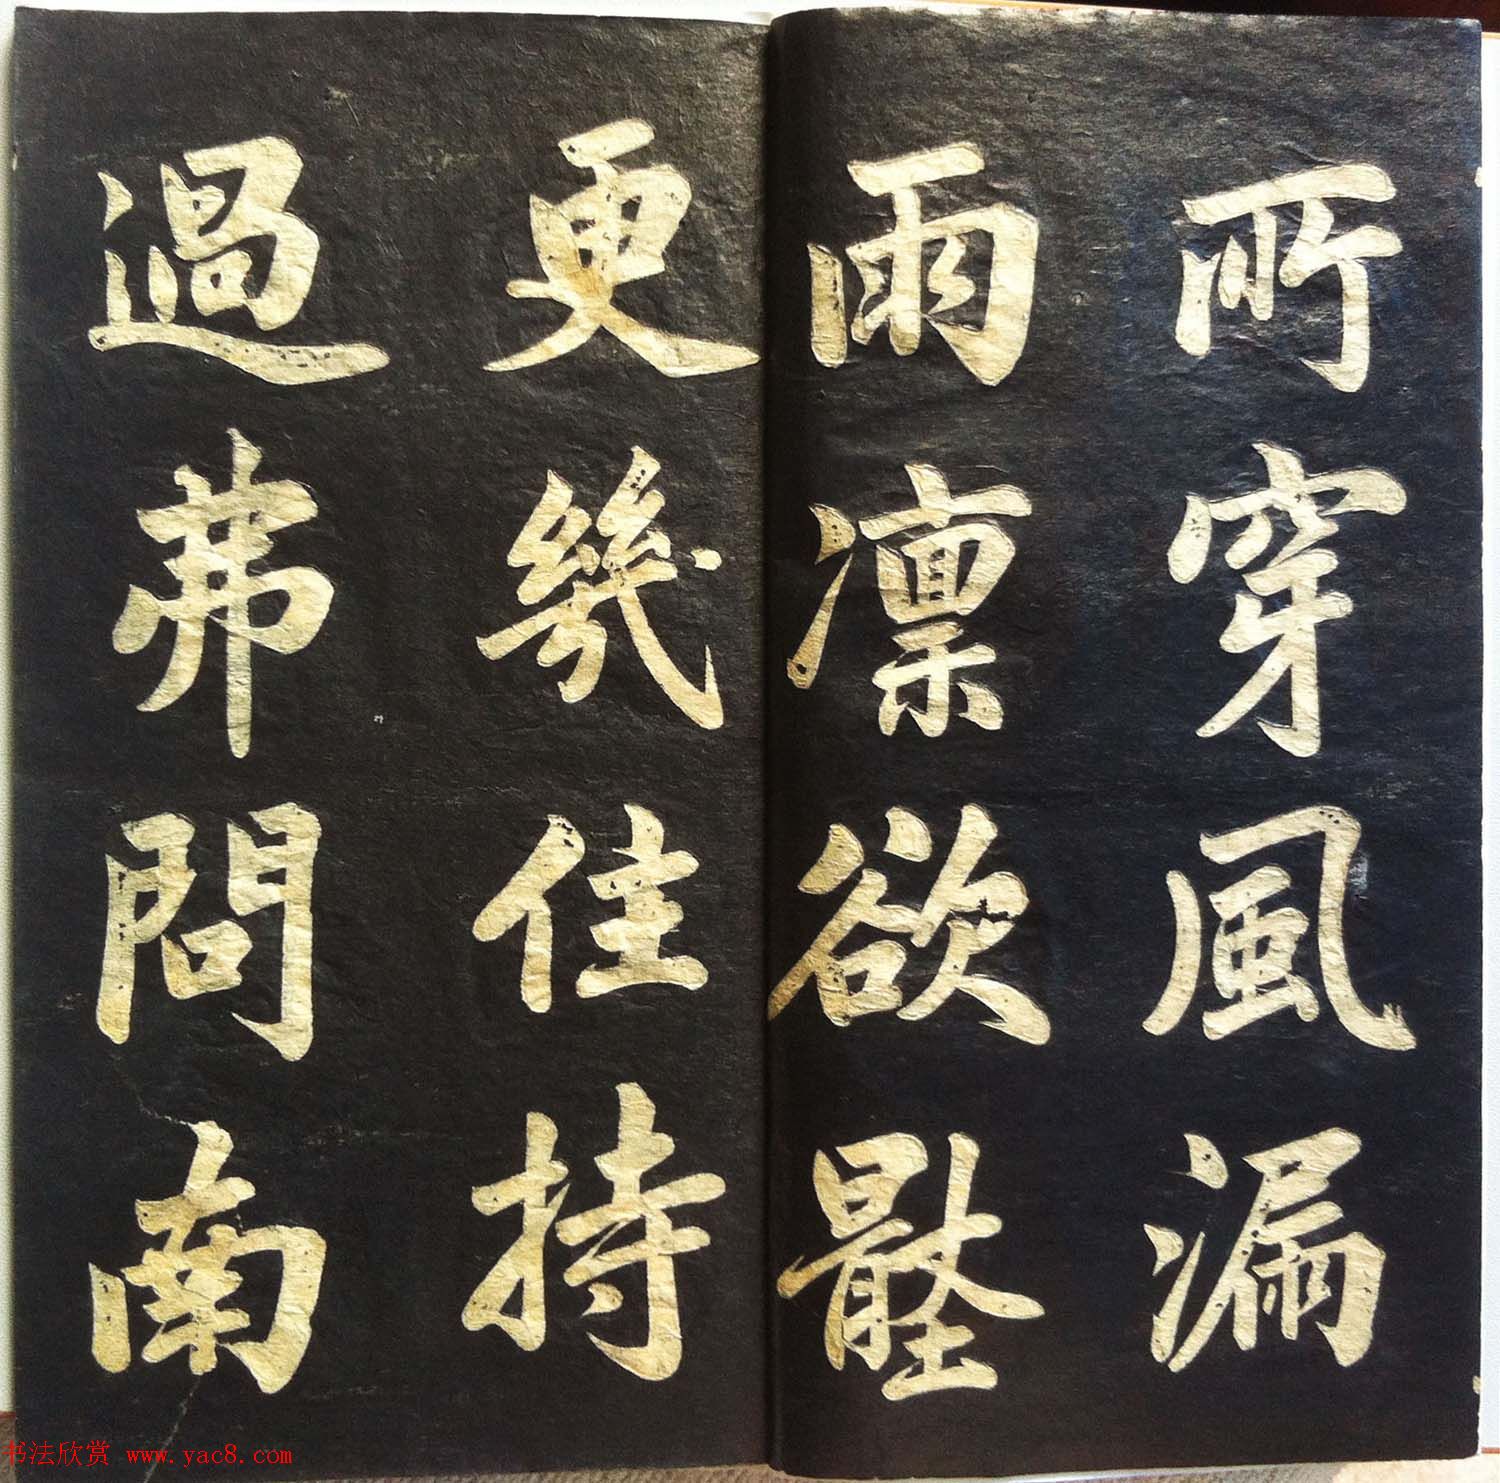 所穿風漏
雨凜欲
更幾住持
過弗問南
书法欣赏 www.yac8.com